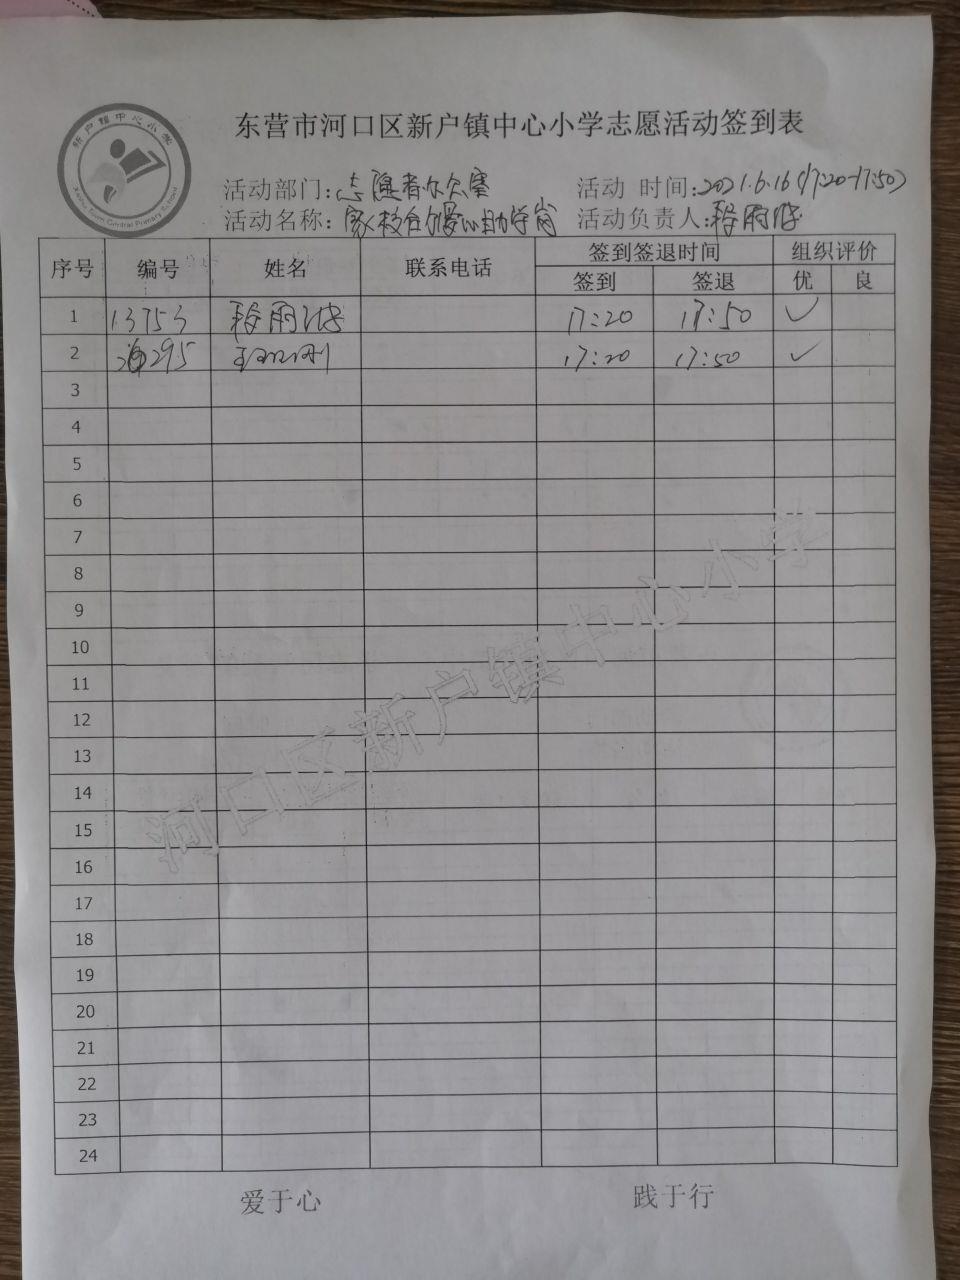 新户镇中心小学
Xinhu Town Central Primary School
东营市河口区新户镇中心小学志愿活动签到表
活动部门:志愿者办公室
活动 时间:2021.6.16(17:20-17:50)
活动名称:家校合力爱心助学岗
活动负责人:雨
序号 编号 姓名 联系电话 签到签退时间 组织评价
签到 签退 优 良
1 13753 雨 17:20 17:50 ✓
2 295 17:20 17:50 ✓
3
4
5
6
7
8
9
10
11
12
13
14
15
16
17
18
19
20
21
22
23
24
河口区新户镇中心小学
爱于心 践于行